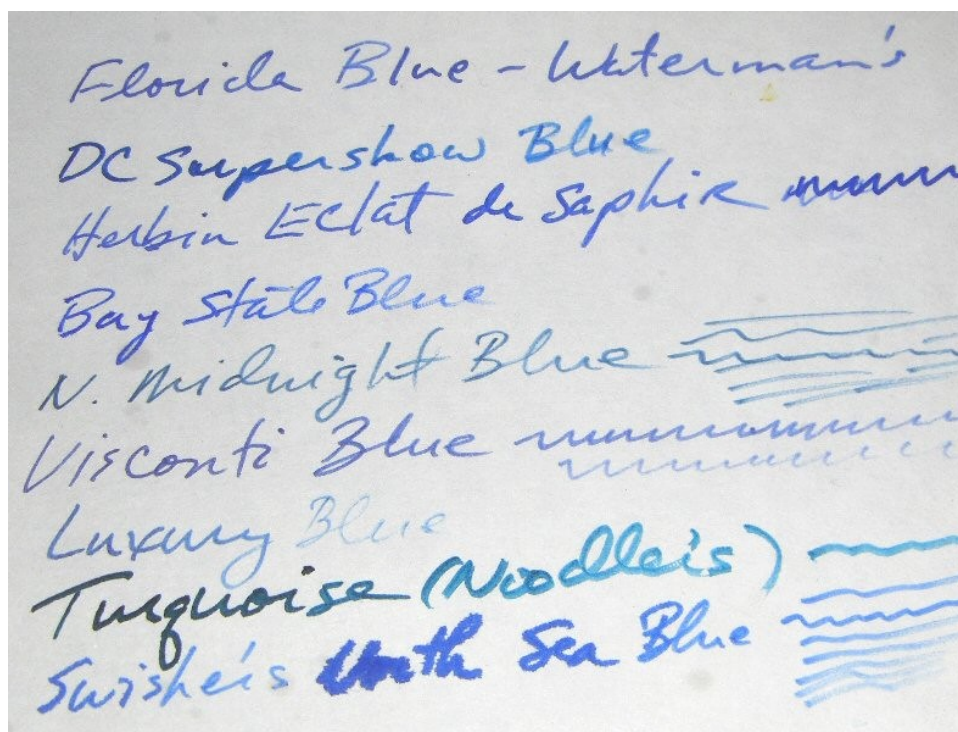 Florida Blue - Waterman's
DC Supershow Blue
Herbin Eclat de Saphir
Bay State Blue
N. Midnight Blue
Visconti Blue
Luxury Blue
Turquoise (Noodler's)
Swisher's North Sea Blue